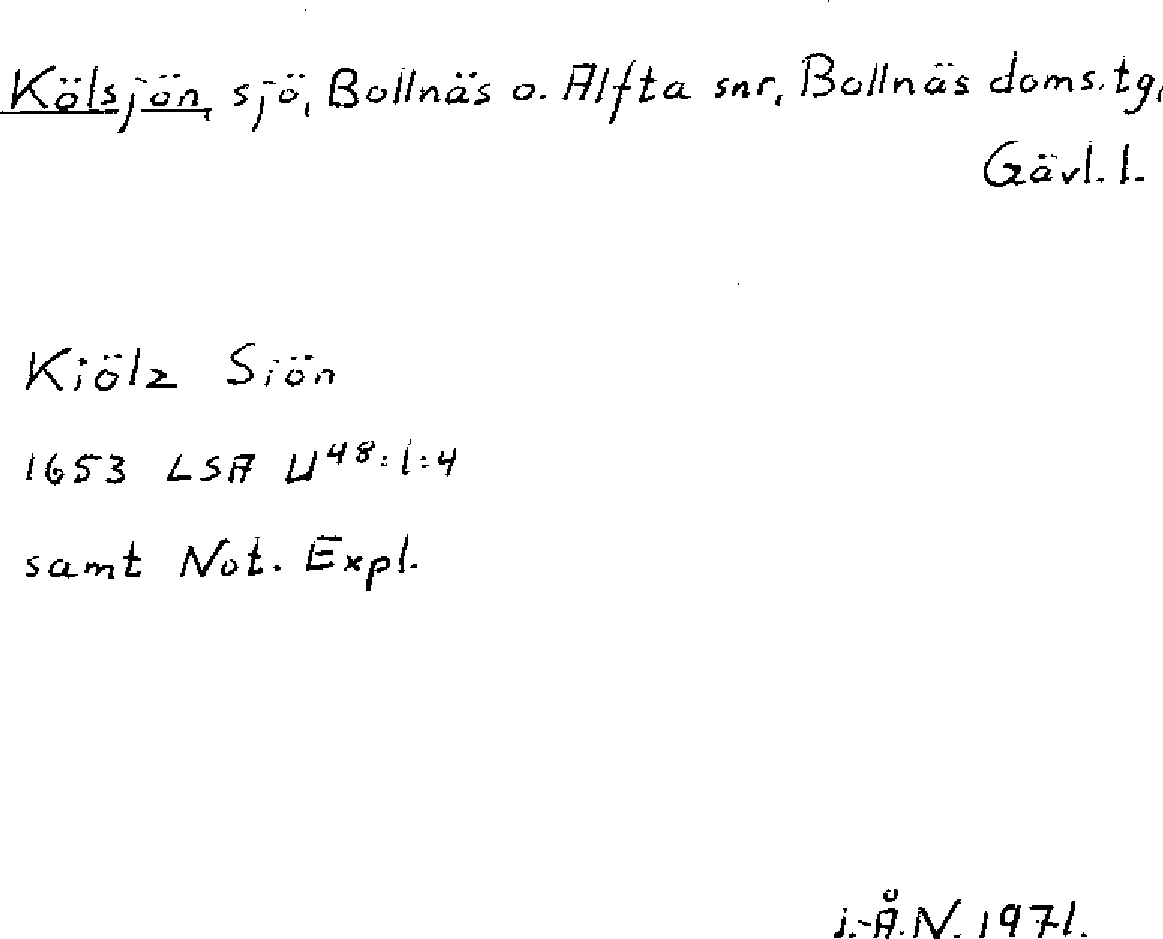 Kölsjön, sjö, Bollnäs o. Alfta snr, Bollnäs doms.tg,
Gävl. l.
Kiölz Siön
1653 LSA U48:1:4
samt Not. Expl.
J.-Å.N. 1971.